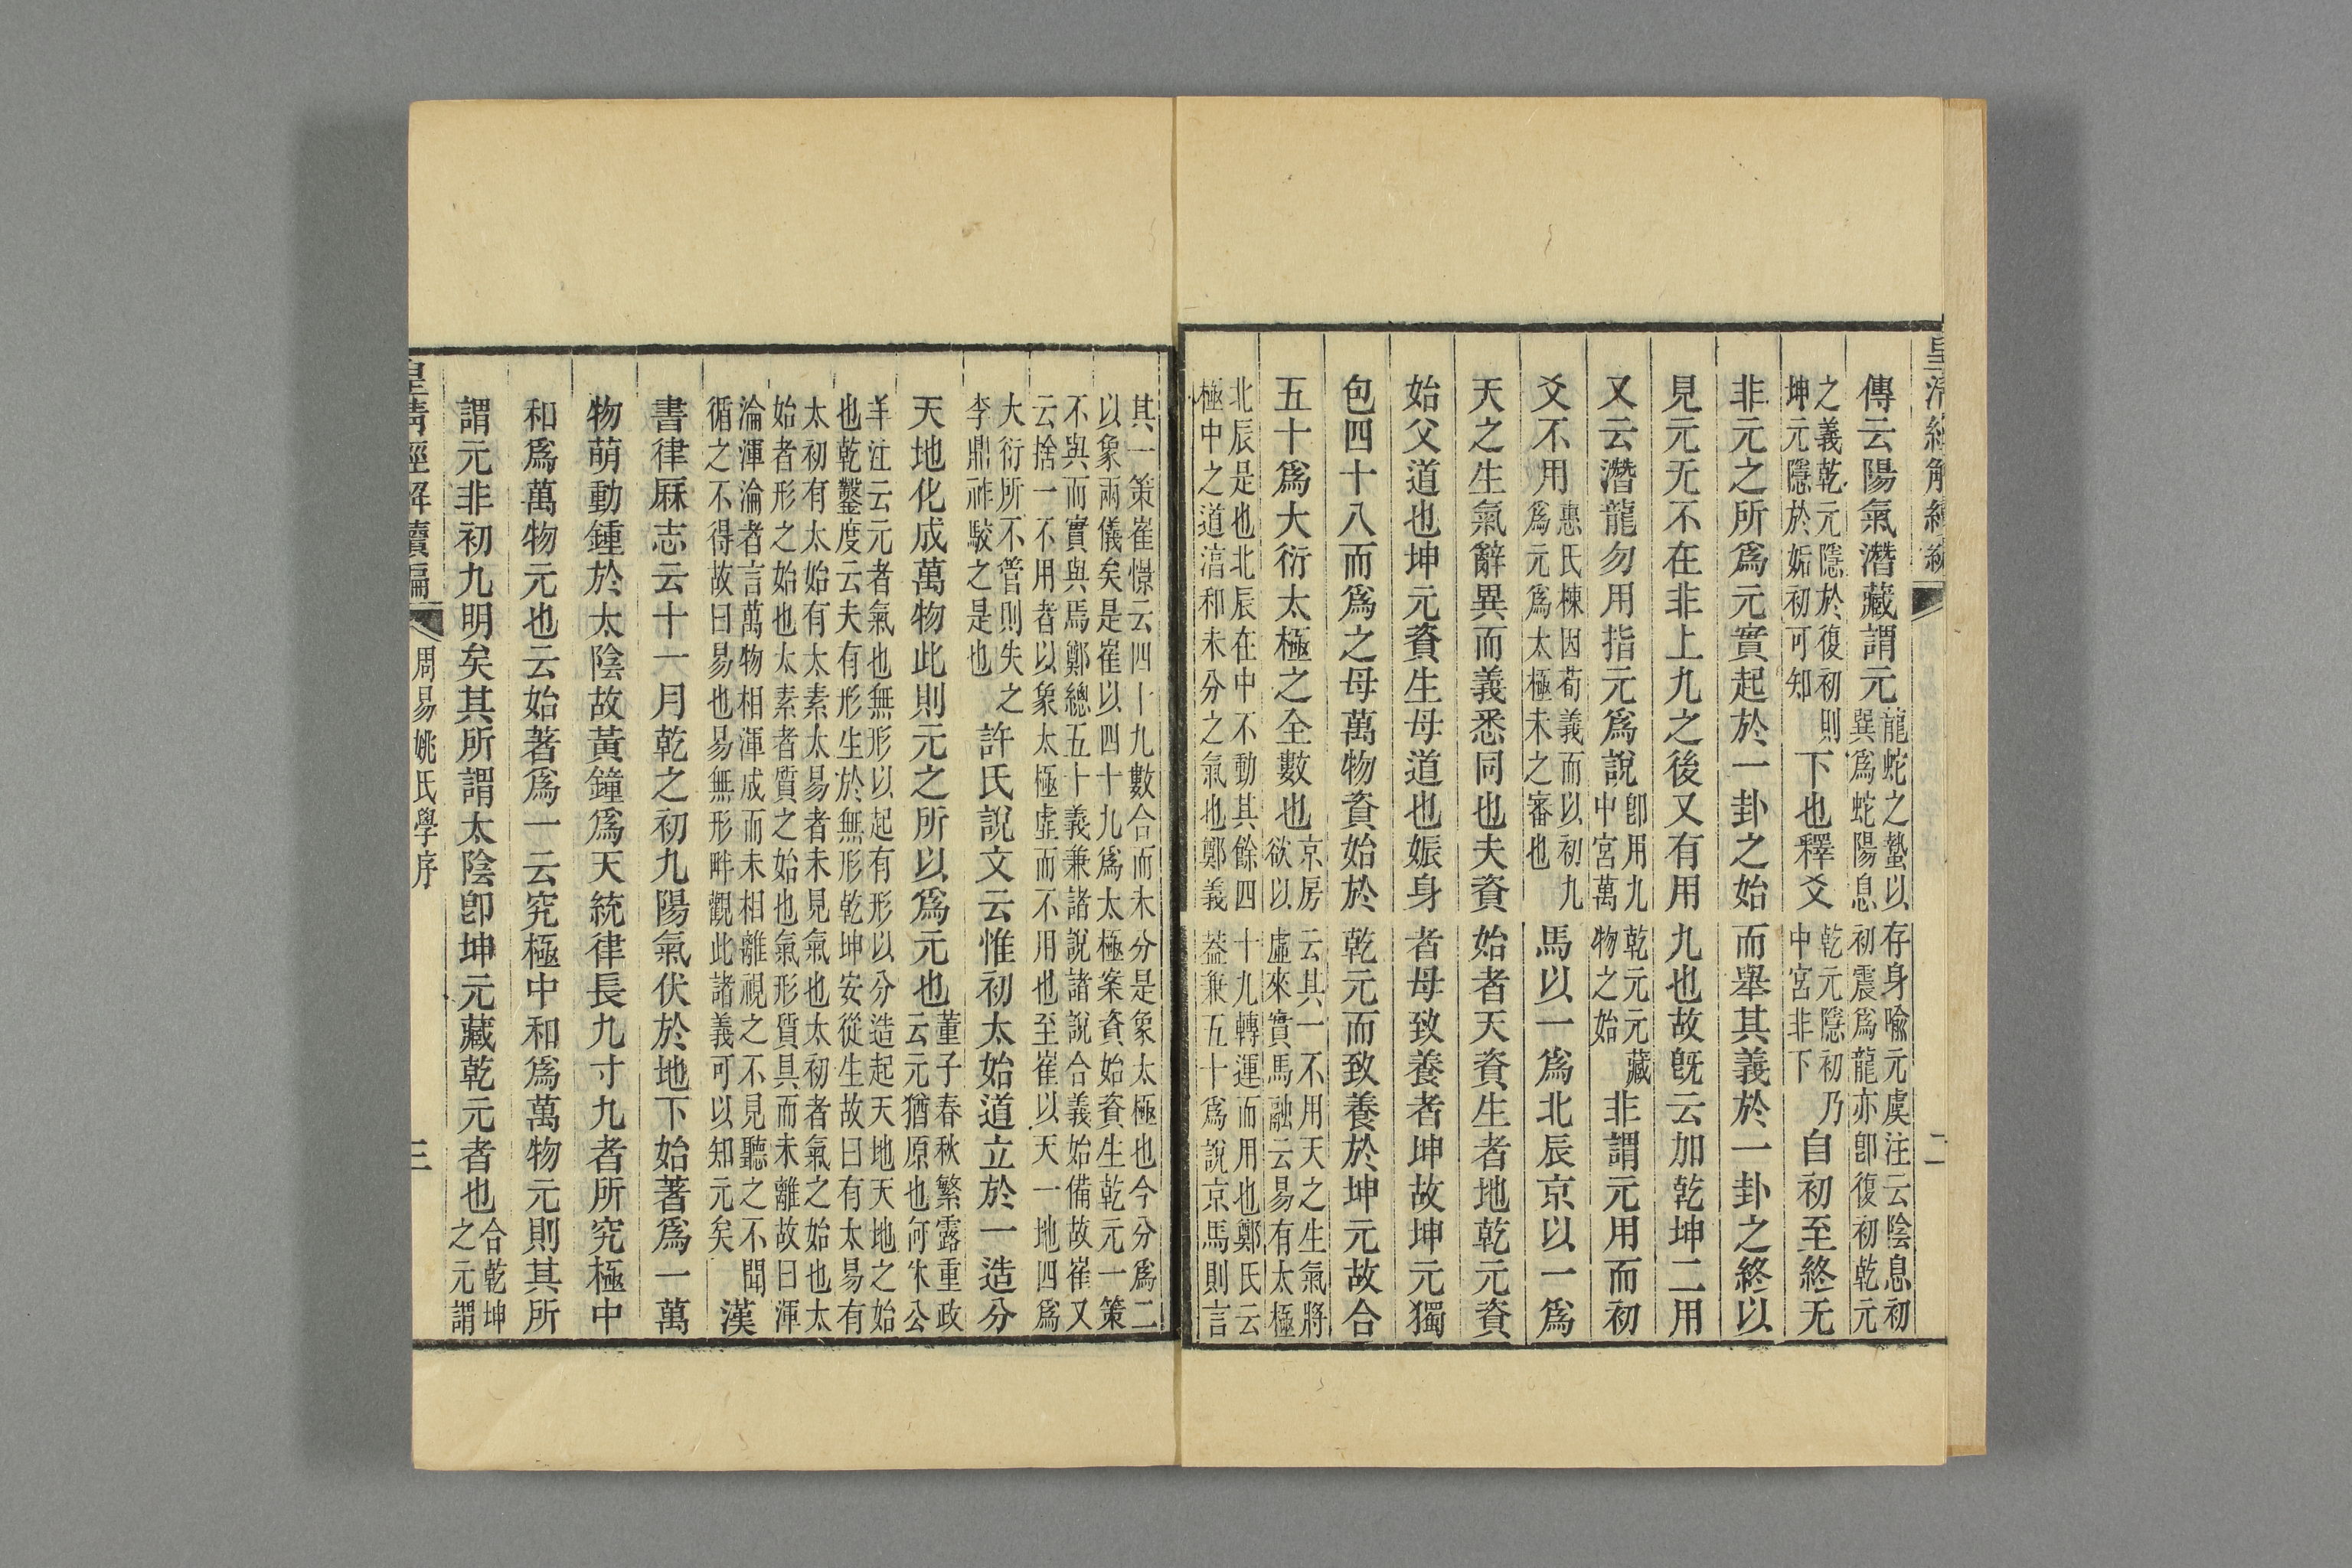 皇清經解續編
二
傳云陽氣潛藏謂元龍蛇之蟄以存身喻元虞注云陰息初
巽爲蛇陽息初震爲龍亦卽復初乾元
之義乾元隱於復初則乾元隱初乃
坤元隱於姤初可知下也釋爻中宮非下自初至終无
非元之所爲元實起於一卦之始而舉其義於一卦之終以
見元无不在非上九之後又有用九也故旣云加乾坤二用
又云潛龍勿用指元爲說卽用九乾元元藏
中宮萬物之始非謂元用而初
爻不用惠氏棟因荀義而以初九
爲元爲太極未之審也馬以一爲北辰京以一爲
天之生氣辭異而義悉同也夫資始者天資生者地乾元資
始父道也坤元資生母道也娠身者母致養者坤故坤元獨
包四十八而爲之母萬物資始於乾元而致養於坤元故合
五十爲大衍太極之全數也京房云其一不用天之生氣將
欲以虛來實馬融云易有太極
北辰是也北辰在中不動其餘四十九轉運而用也鄭氏云
極中之道淯和未分之氣也鄭義葢兼五十爲說京馬則言
其一策崔憬云四十九數合而未分是象太極也今分爲二
以象兩儀矣是崔以四十九爲太極案資始資生乾元一策
不與而實與馬鄭總五十義兼諸說諸說合義始備故崔又
云捨一不用者以象太極虛而不用也至崔以天一地四爲
大衍所不管則失之
李鼎祚駮之是也許氏說文云惟初太始道立於一造分
天地化成萬物此則元之所以爲元也董子春秋繁露重政
云元猶原也何休公
羊注云元者氣也無形以起有形以分造起天地天地之始
也乾鑿度云夫有形生於無形乾坤安從生故曰有太易有
太初有太始有太素太易者未見氣也太初者氣之始也太
始者形之始也太素者質之始也氣形質具而未離故曰渾
淪渾淪者言萬物相渾成而未相離視之不見聽之不聞
循之不得故曰易也易無形畔觀此諸義可以知元矣漢
書律厤志云十一月乾之初九陽氣伏於地下始著爲一萬
物萌動鍾於太陰故黃鐘爲天統律長九寸九者所究極中
和爲萬物元也云始著爲一云究極中和爲萬物元則其所
謂元非初九明矣其所謂太陰卽坤元藏乾元者也合乾坤
之元謂
皇清經解續編
周易姚氏學序
三